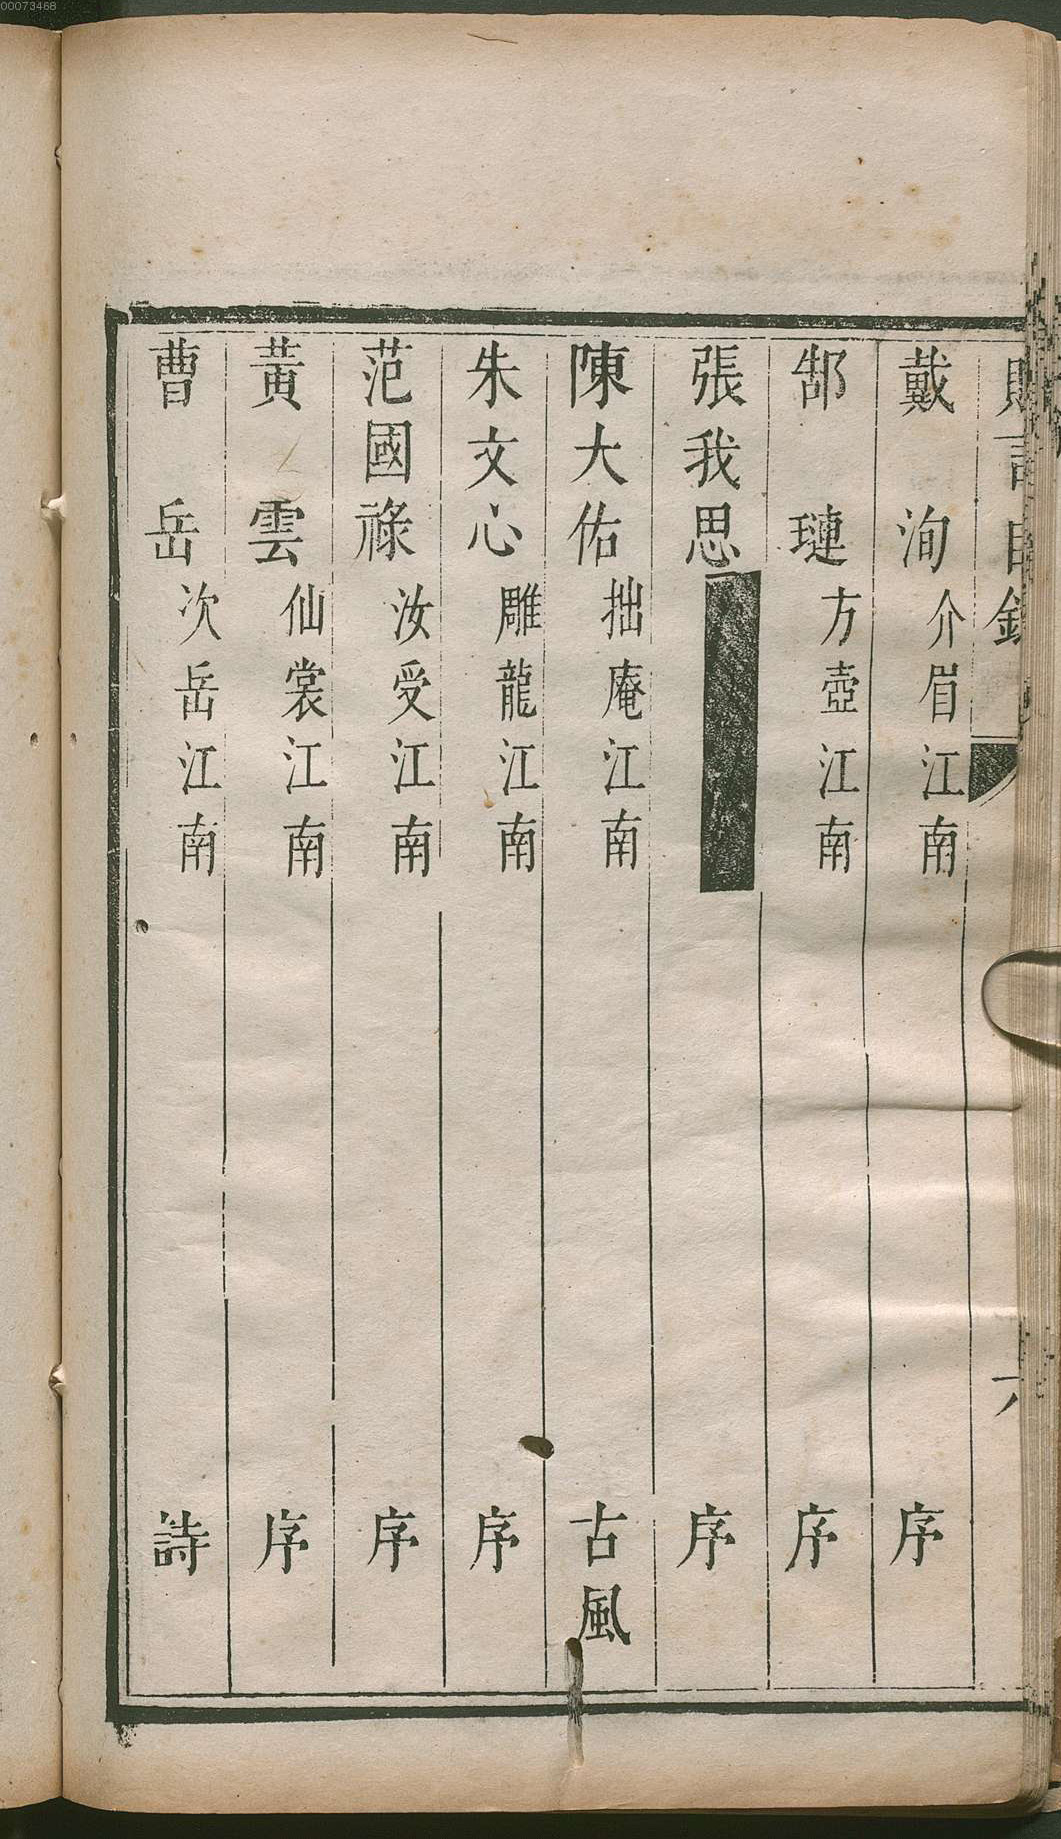 00073468
贈言目錄
戴洵介眉江南序
郜璉方壺江南序
張我思序
陳大佑拙庵江南古風
朱文心雕龍江南序
范國祿汝受江南序
黃雲仙裳江南序
曹岳次岳江南詩